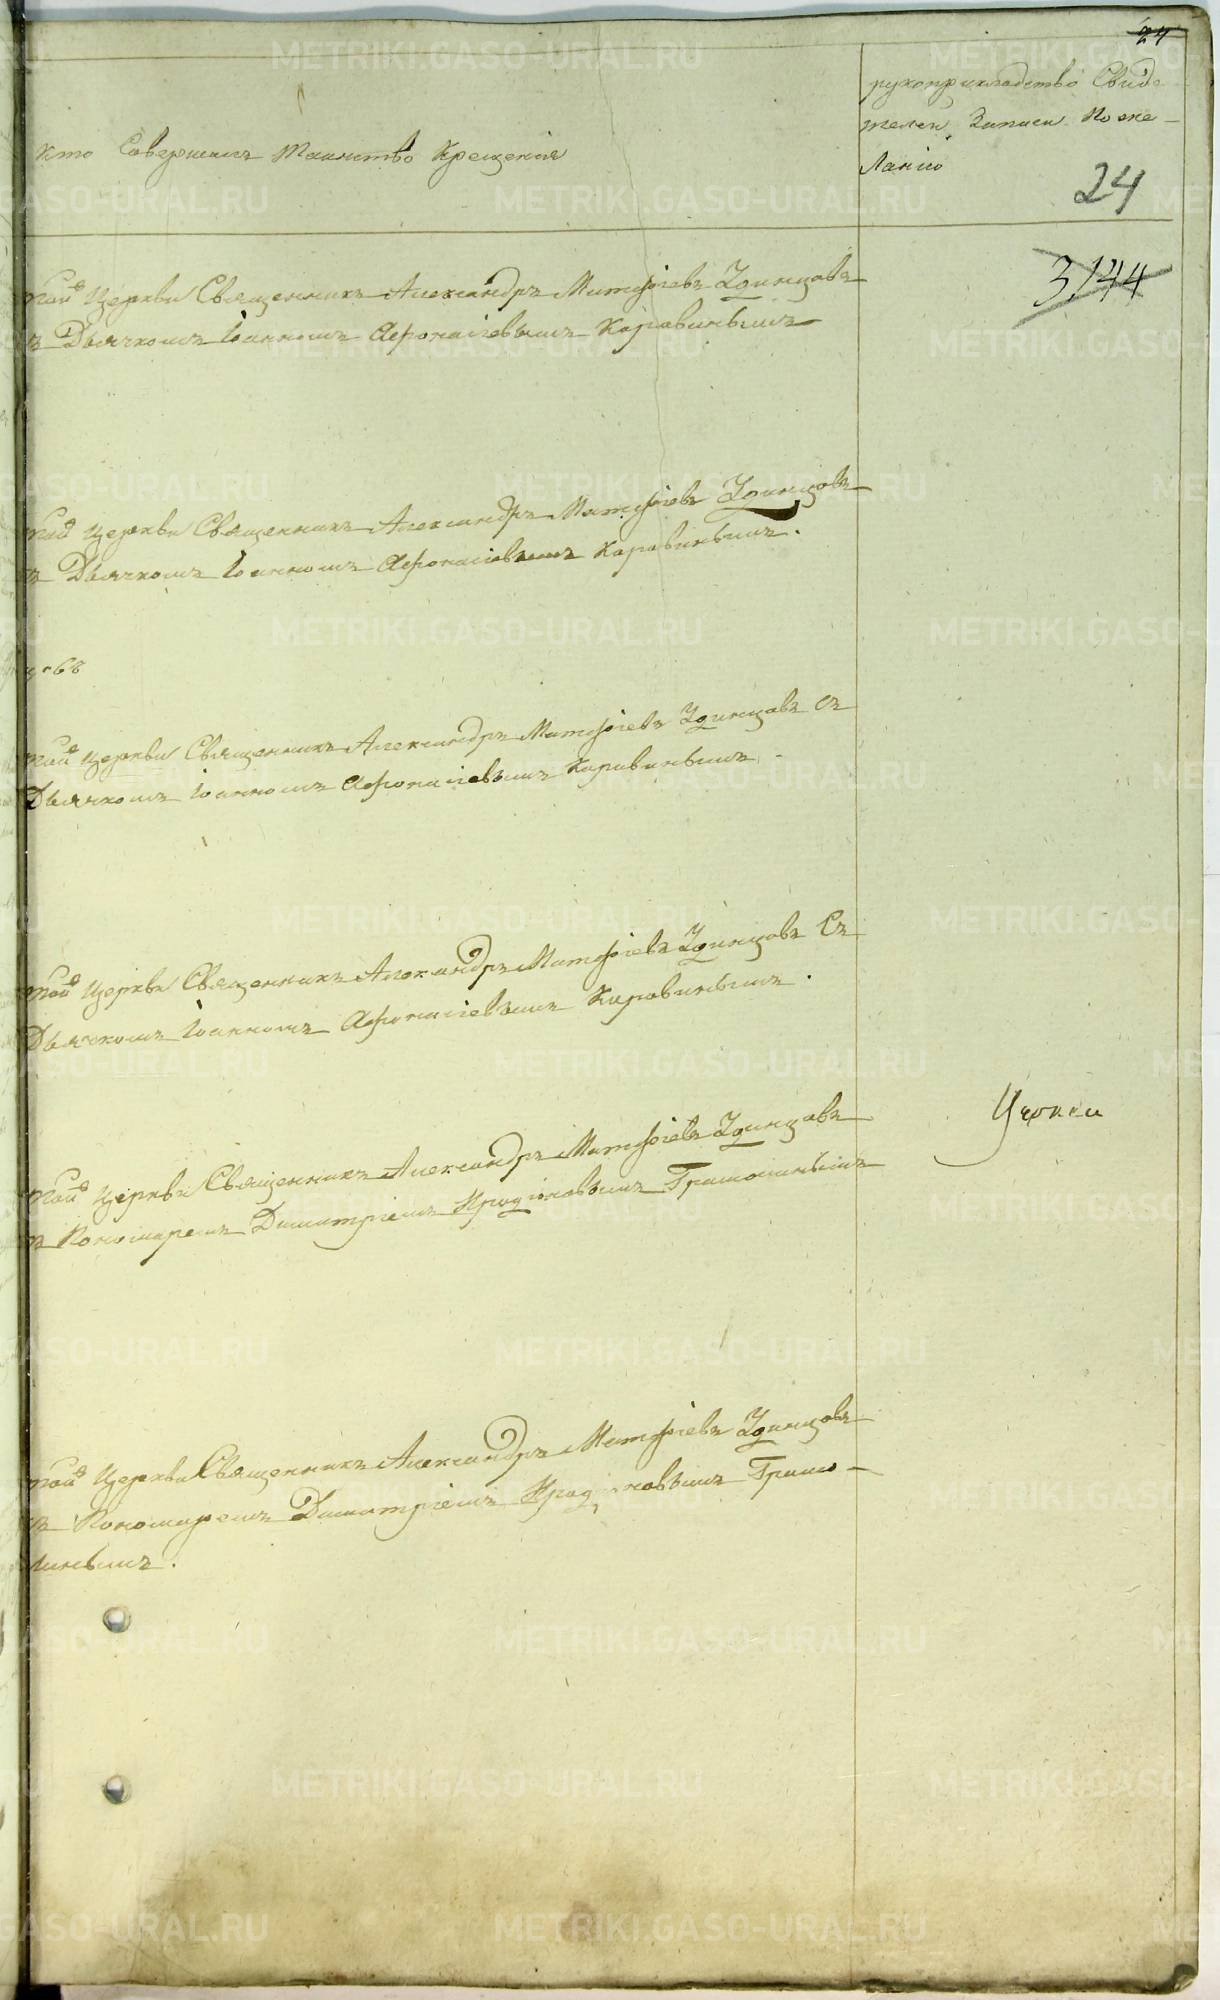 24
Кто Совершалъ Таинство Крещенія
рукоприкладство Свиде
телей Записи По же-
ланію
24
3,144
той Церкви Священникъ Александръ Матфіевъ Удинцовъ
съ Дьячкомъ Іоанномъ Афонасіевымъ Коровинымъ
той Церкви Священникъ Александръ Матфіевъ Удинцовъ
съ Дьячкомъ Іоанномъ Афонасіевымъ Коровинымъ.
той Церкви Священникъ Александръ Матфіевъ Удинцовъ съ
Дьячкомъ Іоанномъ Афонасіевымъ Коровинымъ
той Церкви Священникъ Александръ Матфіевъ Удинцовъ Съ
Дьячкомъ Іоанномъ Афонасіевымъ Коровинымъ.
той Церкви Священникъ Александръ Матфіевъ Удинцовъ
съ Пономаремъ Димитріемъ Иродіоновымъ Грамолинымъ
той Церкви Священникъ Александръ Матфіевъ Удинцовъ
съ Пономаремъ Димитріемъ Иродіоновымъ Грамо-
линымъ.